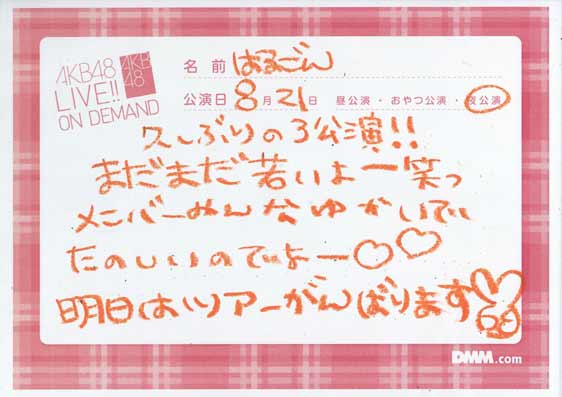 AKB48
LIVE!!
ON DEMAND
AKB
48
名前 はるごん
公演日 8月21日 昼公演・おやつ公演・夜公演
久しぶりの3公演!!
まだまだ若いよー笑っ
メンバーみんなゆかいでい
たのしいのでいよー♡♡
明日はツアーがんばります
DMM.com